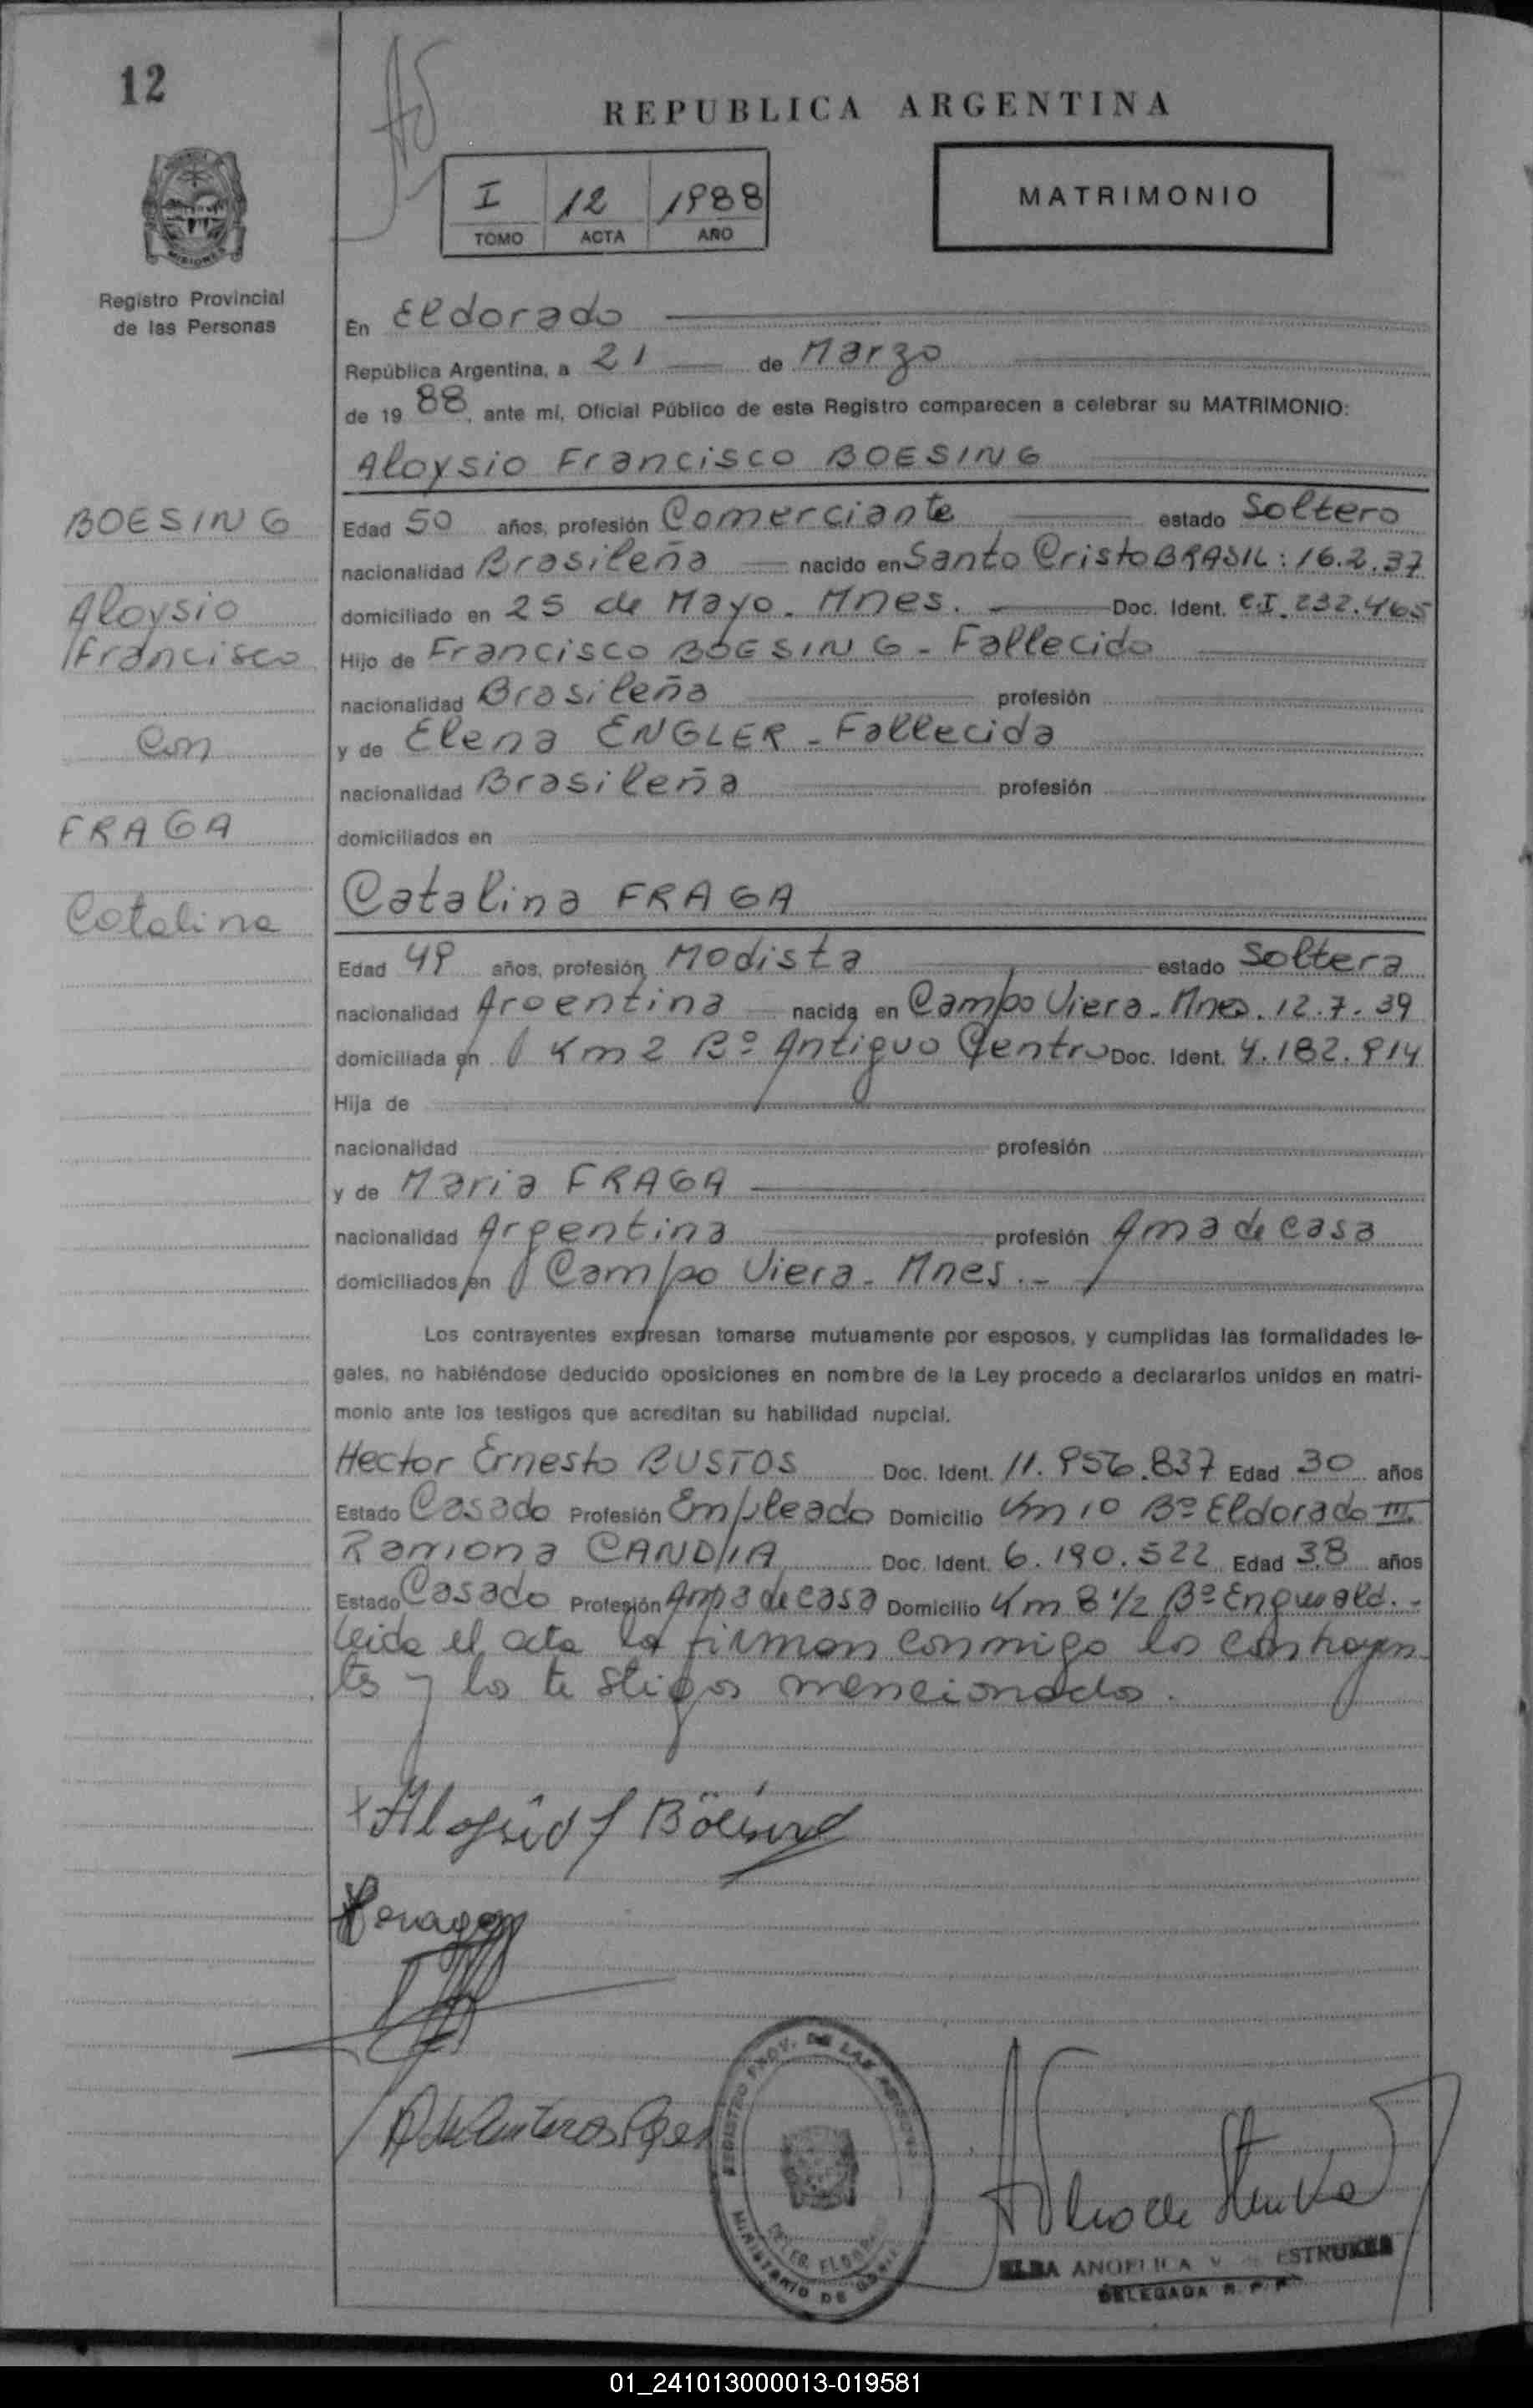 12
REPUBLICA ARGENTINA
I 12 1988
TOMO ACTA AÑO
MATRIMONIO
MISIONES
Registro Provincial
de las Personas
En Eldorado
República Argentina, a 21 de Marzo
de 19 88, ante mí, Oficial Público de este Registro comparecen a celebrar su MATRIMONIO:
Aloysio Francisco BOESING
BOESING
Aloysio
Francisco
Con
FRAGA
Catalina
Edad 50 años, profesión Comerciante estado Soltero
nacionalidad Brasileña nacido en Santo Cristo BRASIL: 16.2.37
domiciliado en 25 de Mayo. Mnes. Doc. Ident. C.I. 232.465
Hijo de Francisco BOESING - Fallecido
nacionalidad Brasileña profesión
y de Elena ENGLER - Fallecida
nacionalidad Brasileña profesión
domiciliados en
Catalina FRAGA
Edad 49 años, profesión Modista estado Soltera
nacionalidad Argentina nacida en Campo Viera. Mnes. 12.7.39
domiciliada en Km 2 Bº Antiguo Centro Doc. Ident. 4.182.914
Hija de
nacionalidad profesión
y de Maria FRAGA
nacionalidad Argentina profesión Ama de casa
domiciliados en Campo Viera. Mnes.-
Los contrayentes expresan tomarse mutuamente por esposos, y cumplidas las formalidades le-
gales, no habiéndose deducido oposiciones en nombre de la Ley procedo a declararlos unidos en matri-
monio ante los testigos que acreditan su habilidad nupcial.
Hector Ernesto BUSTOS Doc. Ident. 11.956.837 Edad 30 años
Estado Casado Profesión Empleado Domicilio Km 10 Bº Eldorado III.
Ramona CANDIA Doc. Ident. 6.190.522 Edad 38 años
Estado Casado Profesión Ama de casa Domicilio Km 8 1/2 Bº Enguald.-
Leida el acta la firman conmigo los contrayen
tes y los testigos mencionados.
Aloysio f Böesing
REGISTRO PROV. DE LAS PERSONAS
DELEG. ELDORADO
MINISTERIO DE GOB
ELBA ANGELICA V ESTRUKER
DELEGADA R. P. P.
01_241013000013-019581